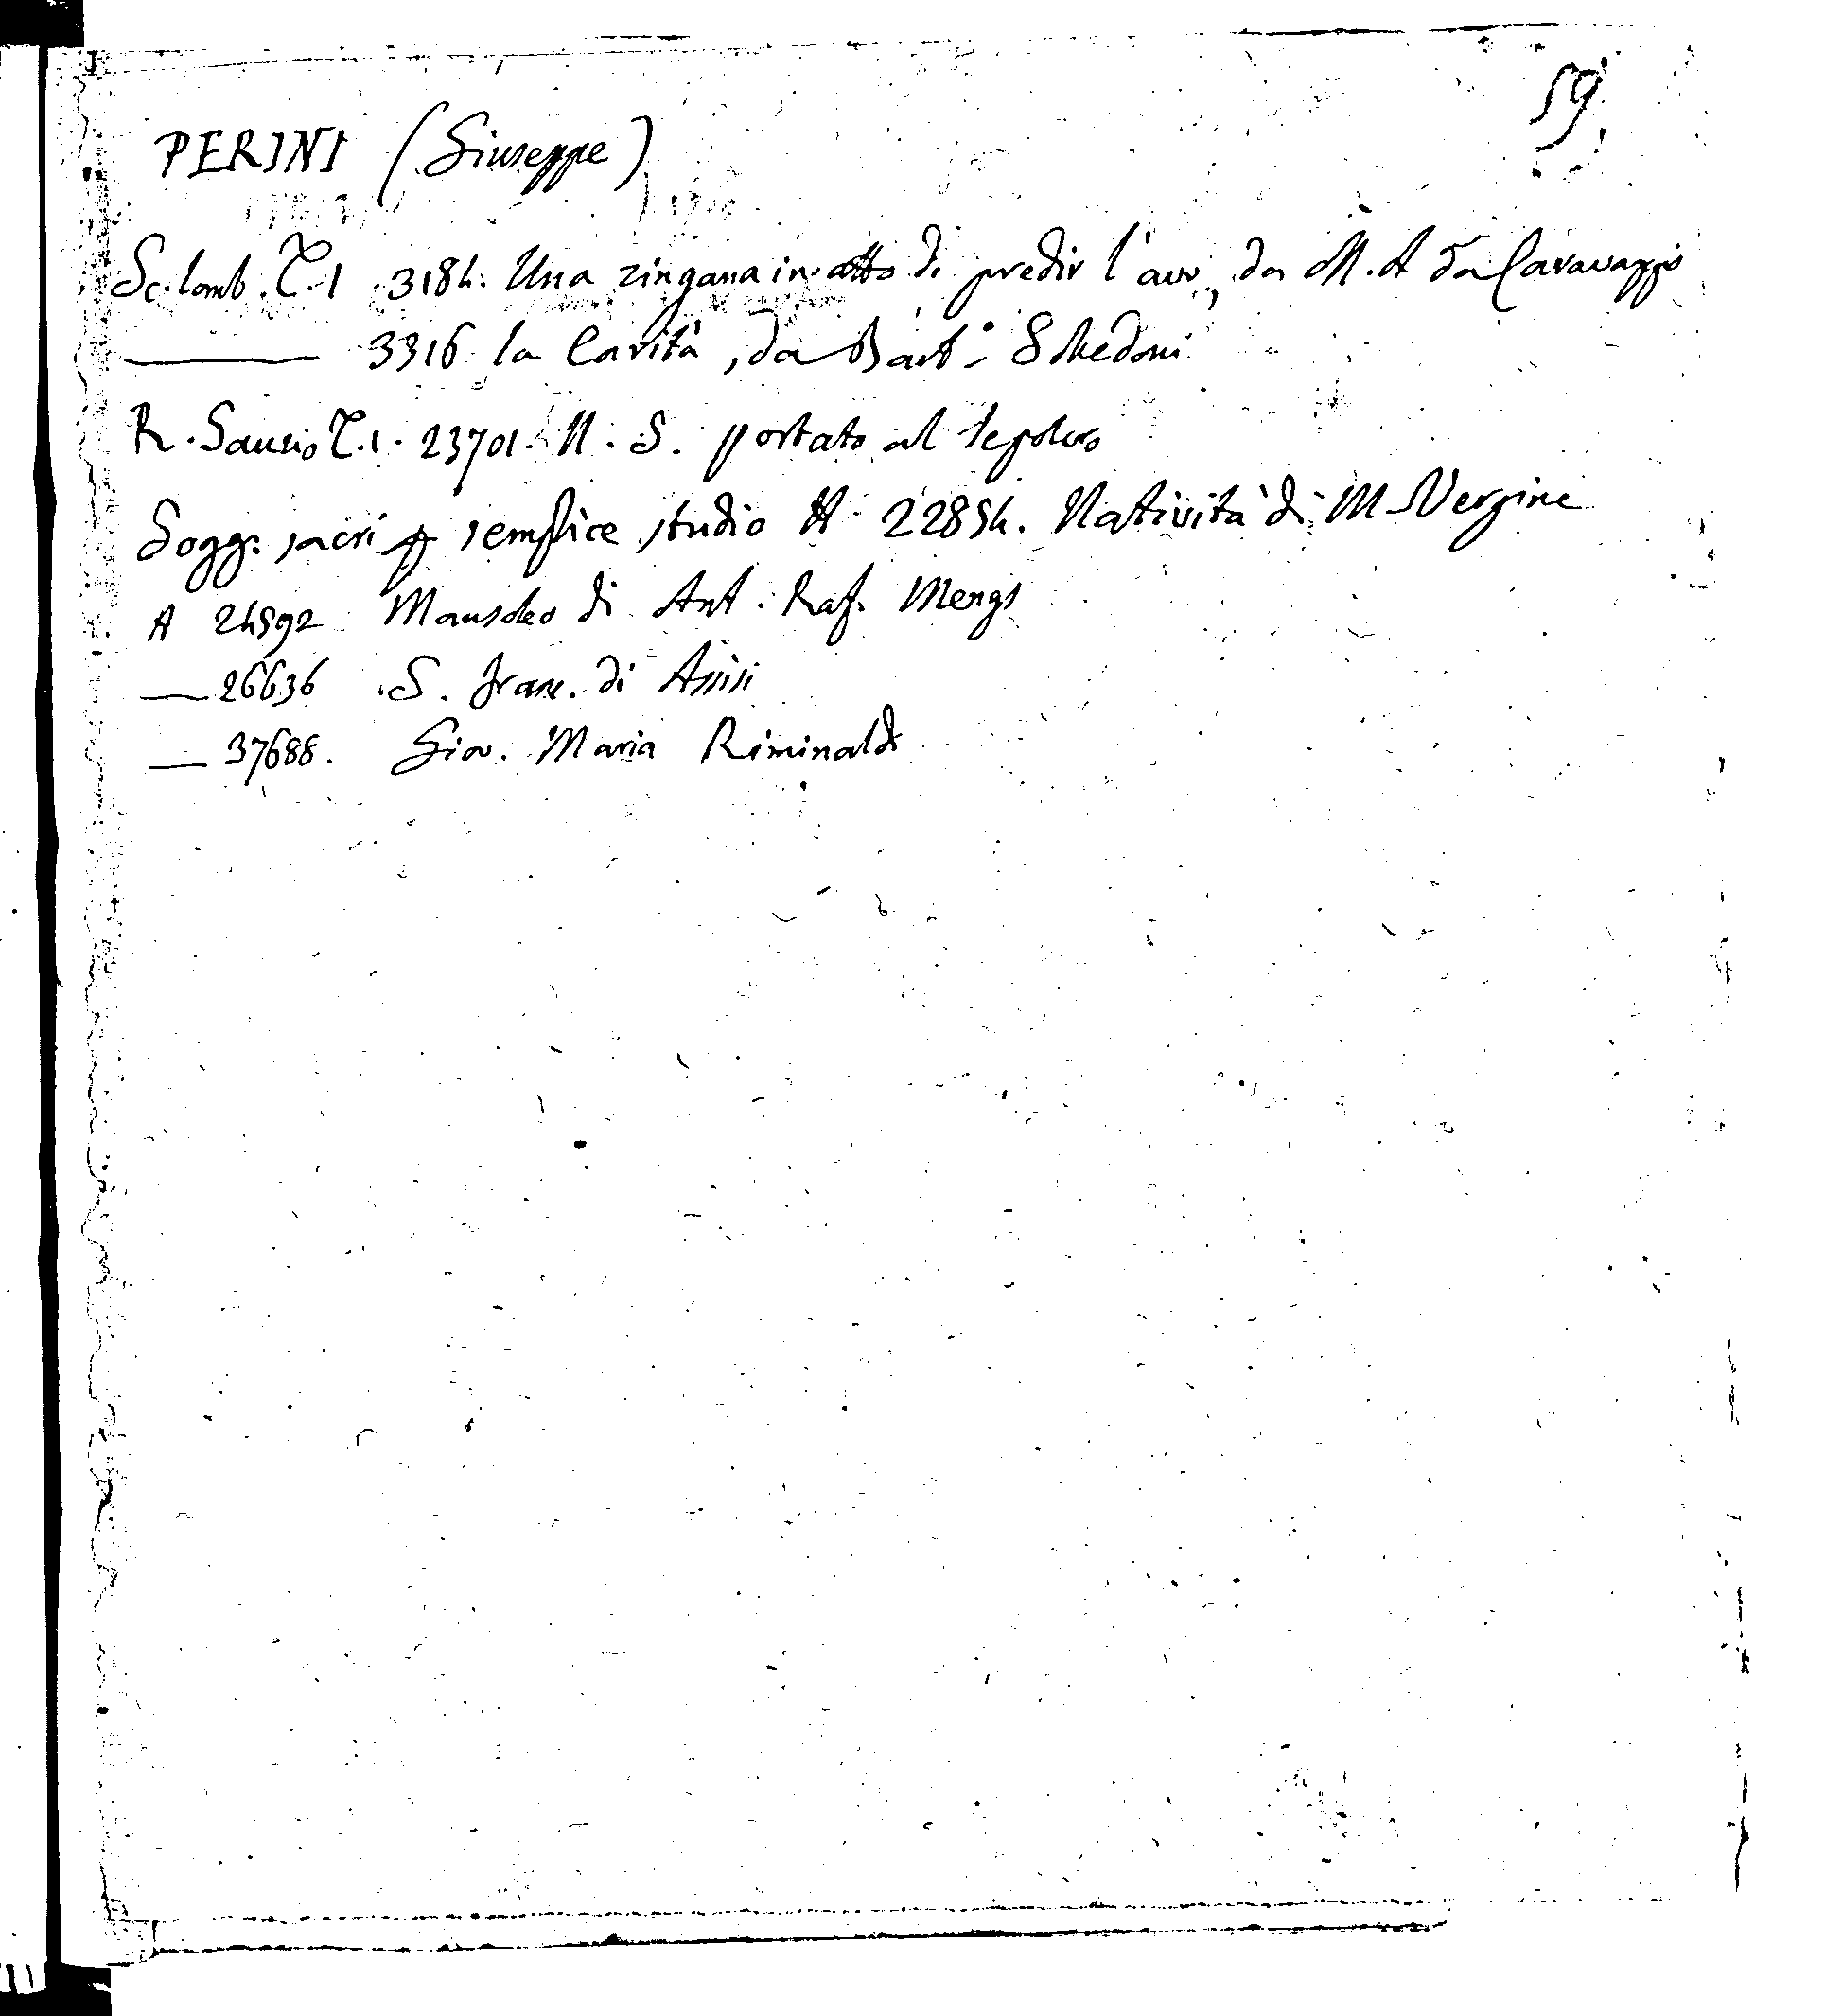 59.
PERINI (Giuseppe)
Sc. Lomb. T. 1. 3184. Una zingana in atto di predir l'avv, da M. A da Caravaggio
——— 3316 la Carità, da Bart.° Skedoni
R. Sanzio T. 1. 23701. N. S. portato al Sepolcro
Sogg. sacri p semplice studio A 22854. Natività di M Vergine
A 24592 Mausoleo di Ant. Raf. Mengs
— 26636 S. Franc. di Assisi
— 37688. Giov. Maria Riminaldi